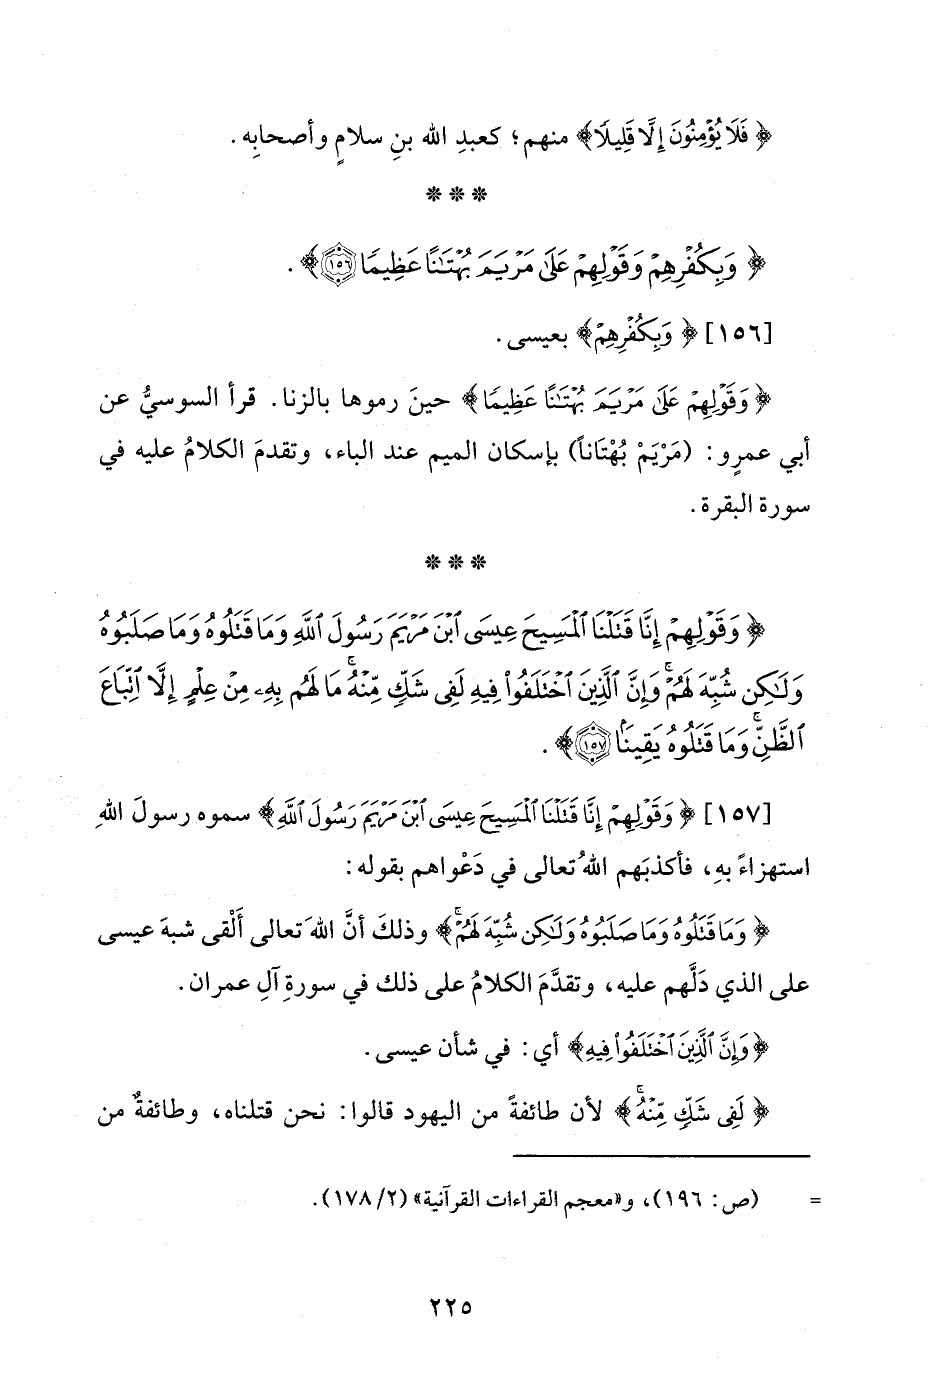 ﴿ فَلَا يُؤْمِنُونَ إِلَّا قَلِيلًا﴾ منهم؛ كعبدِ الله بنِ سلامٍ وأصحابِه .
* * *
﴿ وَبِكُفْرِهِمْ وَقَوْلِهِمْ عَلَىٰ مَرْيَمَ بُهْتَٰنًا عَظِيمًا ١٥٦﴾ .
[١٥٦] ﴿ وَبِكُفْرِهِمْ﴾ بعيسى .
﴿ وَقَوْلِهِمْ عَلَىٰ مَرْيَمَ بُهْتَٰنًا عَظِيمًا﴾ حينَ رموها بالزنا . قرأ السوسيُّ عن
أبي عمرٍو : (مَرْيَمْ بُهْتَاناً) بإسكان الميم عند الباء، وتقدمَ الكلامُ عليه في
سورة البقرة .
* * *
﴿ وَقَوْلِهِمْ إِنَّا قَتَلْنَا ٱلْمَسِيحَ عِيسَى ٱبْنَ مَرْيَمَ رَسُولَ ٱللَّهِ وَمَا قَتَلُوهُ وَمَا صَلَبُوهُ
وَلَٰكِن شُبِّهَ لَهُمْ ۚ وَإِنَّ ٱلَّذِينَ ٱخْتَلَفُوا۟ فِيهِ لَفِى شَكٍّ مِّنْهُ ۚ مَا لَهُم بِهِۦ مِنْ عِلْمٍ إِلَّا ٱتِّبَاعَ
ٱلظَّنِّ ۚ وَمَا قَتَلُوهُ يَقِينًۢا ١٥٧﴾ .
[١٥٧] ﴿ وَقَوْلِهِمْ إِنَّا قَتَلْنَا ٱلْمَسِيحَ عِيسَى ٱبْنَ مَرْيَمَ رَسُولَ ٱللَّهِ﴾ سموه رسولَ اللهِ
استهزاءً بهِ، فأكذبَهم اللهُ تعالى في دَعْواهم بقوله :
﴿ وَمَا قَتَلُوهُ وَمَا صَلَبُوهُ وَلَٰكِن شُبِّهَ لَهُمْ ۚ﴾ وذلكَ أنَّ اللهَ تعالى أَلْقى شبهَ عيسى
على الذي دَلَّهم عليه، وتقدَّمَ الكلامُ على ذلك في سورةِ آلِ عمران .
﴿ وَإِنَّ ٱلَّذِينَ ٱخْتَلَفُوا۟ فِيهِ﴾ أي : في شأن عيسى .
﴿ لَفِى شَكٍّ مِّنْهُ ۚ﴾ لأن طائفةً من اليهود قالوا : نحن قتلناه، وطائفةٌ من
= (ص : ١٩٦)، و«معجم القراءات القرآنية» (٢/ ١٧٨).
٢٢٥